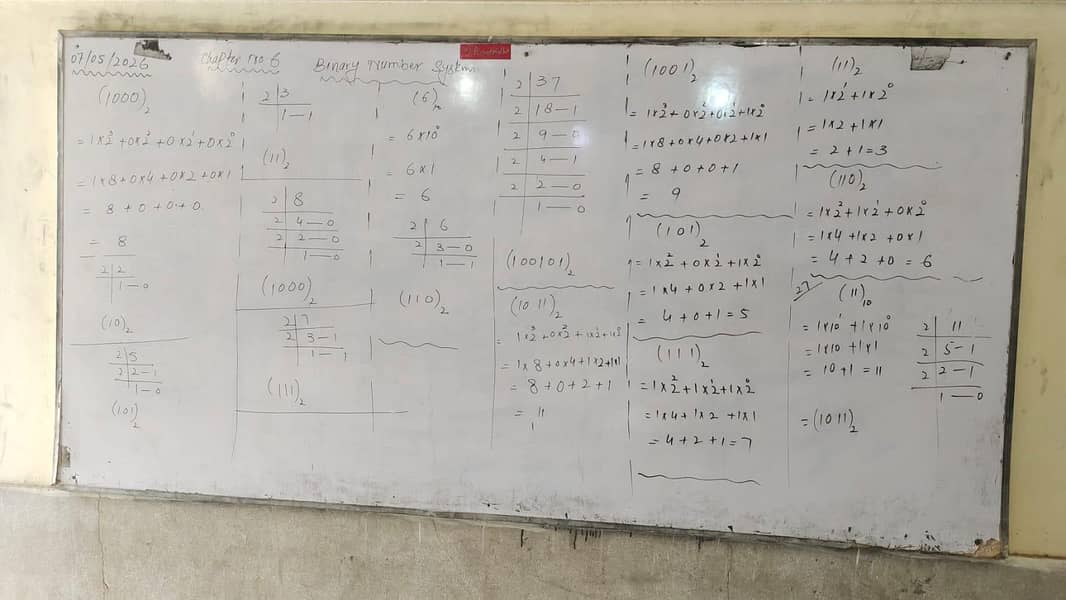 07/05/2026 Chapter no. 6 Binary Number System
(1000)₂
= 1×2³+0×2²+0×2¹+0×2⁰
= 1×8+0×4+0×2+0×1
= 8+0+0+0
= 8
2 | 2
1—0
(10)₂
2 | 5
2 | 2—1
1—0
(101)₂
2 | 3
1—1
(11)₂
2 | 8
2 | 4—0
2 | 2—0
1—0
(1000)₂
2 | 7
2 | 3—1
1—1
(111)₂
= 6×10⁰
= 6×1
= 6
2 | 6
2 | 3—0
1—1
(110)₂
2 | 37
2 | 18—1
2 | 9—0
2 | 4—1
2 | 2—0
1—0
(100101)₂
(1011)₂
= 1×2³+0×2²+1×2¹+1×2⁰
= 1×8+0×4+1×2+1×1
= 8+0+2+1
= 11
(1001)₂
= 1×2³+0×2²+0×2¹+1×2⁰
= 1×8+0×4+0×2+1×1
= 8+0+0+1
= 9
(101)₂
= 1×2²+0×2¹+1×2⁰
= 1×4+0×2+1×1
= 4+0+1=5
(111)₂
= 1×2²+1×2¹+1×2⁰
= 1×4+1×2+1×1
= 4+2+1=7
(11)₂
= 1×2¹+1×2⁰
= 1×2+1×1
= 2+1=3
(110)₂
= 1×2²+1×2¹+0×2⁰
= 1×4+1×2+0×1
= 4+2+0=6
27 (11)₁₀
= 1×10¹+1×10⁰
= 1×10+1×1
= 10+1=11
= (1011)₂
2 | 11
2 | 5—1
2 | 2—1
1—0